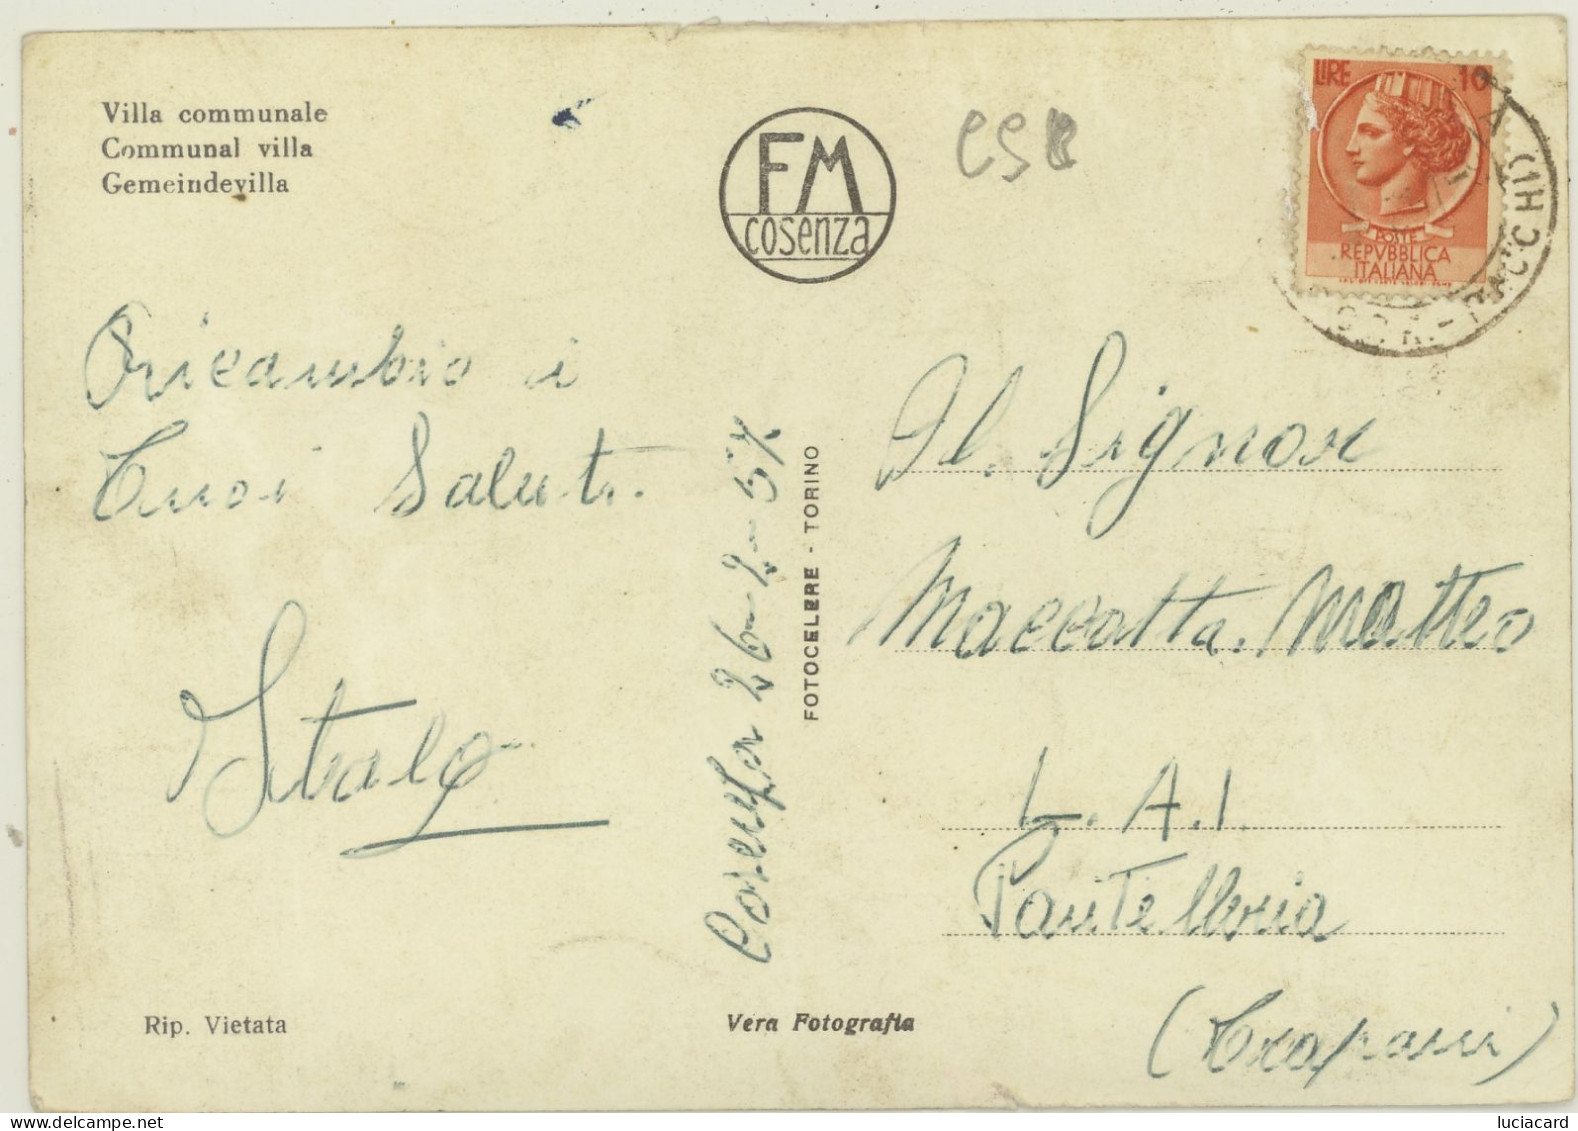 Villa communale
Communal villa
Gemeindevilla
FM
cosenza
CSB
LIRE 10
POSTE
REPVBBLICA
ITALIANA
Ricambio i
tuoi Saluti.
Italo
Cosenza 26-2-57
FOTOCELERE - TORINO
Il. Signor
Maccotta. Matteo
L.A.I.
Pantelleria
(Trapani)
Rip. Vietata
Vera Fotografia
luciacard